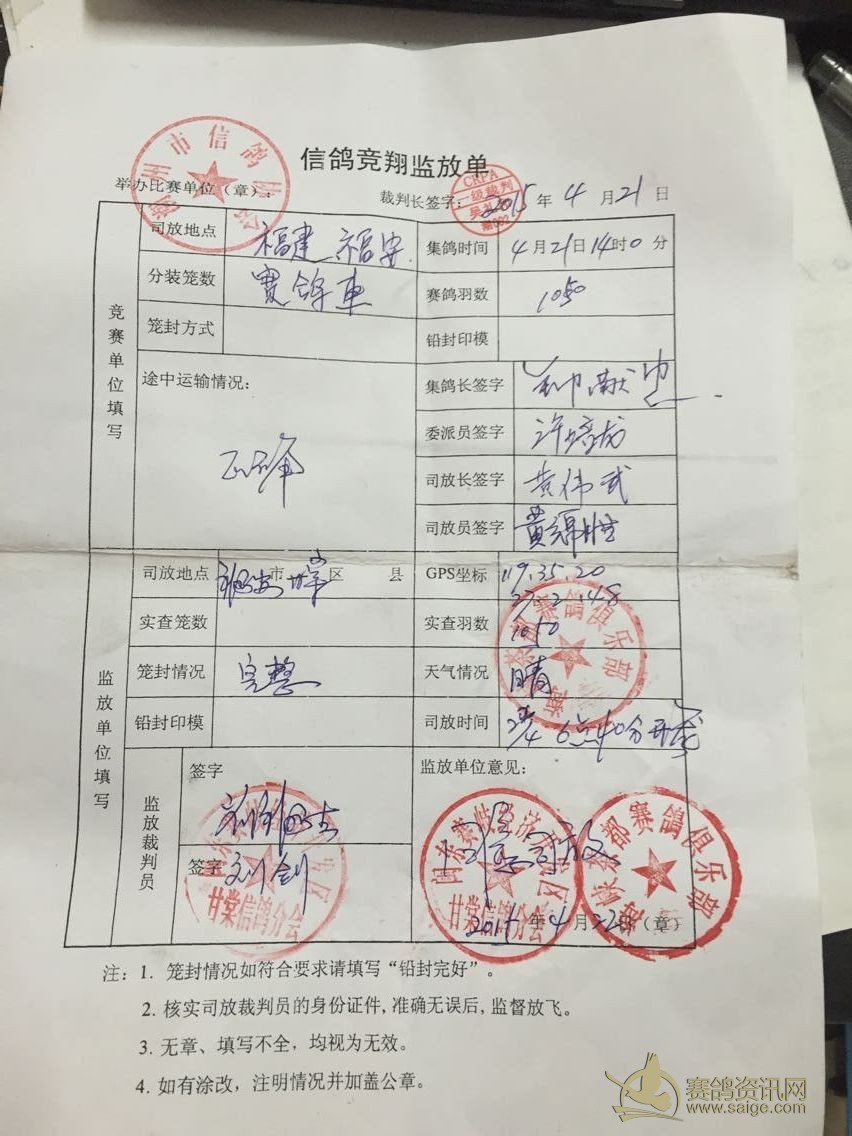 信鸽竞翔监放单
举办比赛单位（章）：
州市信鸽协会
裁判长签字：
CRPA
一级裁判
2015年4月21日
竞赛单位填写
司放地点 福建 福安
集鸽时间 4月21日14时0分
分装笼数 赛鸽车
赛鸽羽数 1050
笼封方式
铅封印模
途中运输情况：
正常
集鸽长签字
委派员签字 许培龙
司放长签字 黄伟武
司放员签字
监放单位填写
司放地点 市 区 县
GPS坐标 119.35.20
27.2.48
实查笼数
实查羽数 1050
笼封情况 完整
天气情况 晴
铅封印模
司放时间 22/4 6点40分开笼
赛鸽俱乐部
监放裁判员
签字
签字 刘剑
甘棠信鸽分会
监放单位意见：
同意司放
甘棠信鸽分会
都赛鸽俱乐部
年4月22日（章）
注：1. 笼封情况如符合要求请填写“铅封完好”。
2. 核实司放裁判员的身份证件，准确无误后，监督放飞。
3. 无章、填写不全，均视为无效。
4. 如有涂改，注明情况并加盖公章。
赛鸽资讯网
www.saige.com